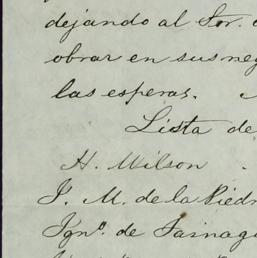 dejando al Sor.
obrar en sus neg
las esperas.
Lista de
H. Wilson .
J. M. de la Piedr
Ygnº. de